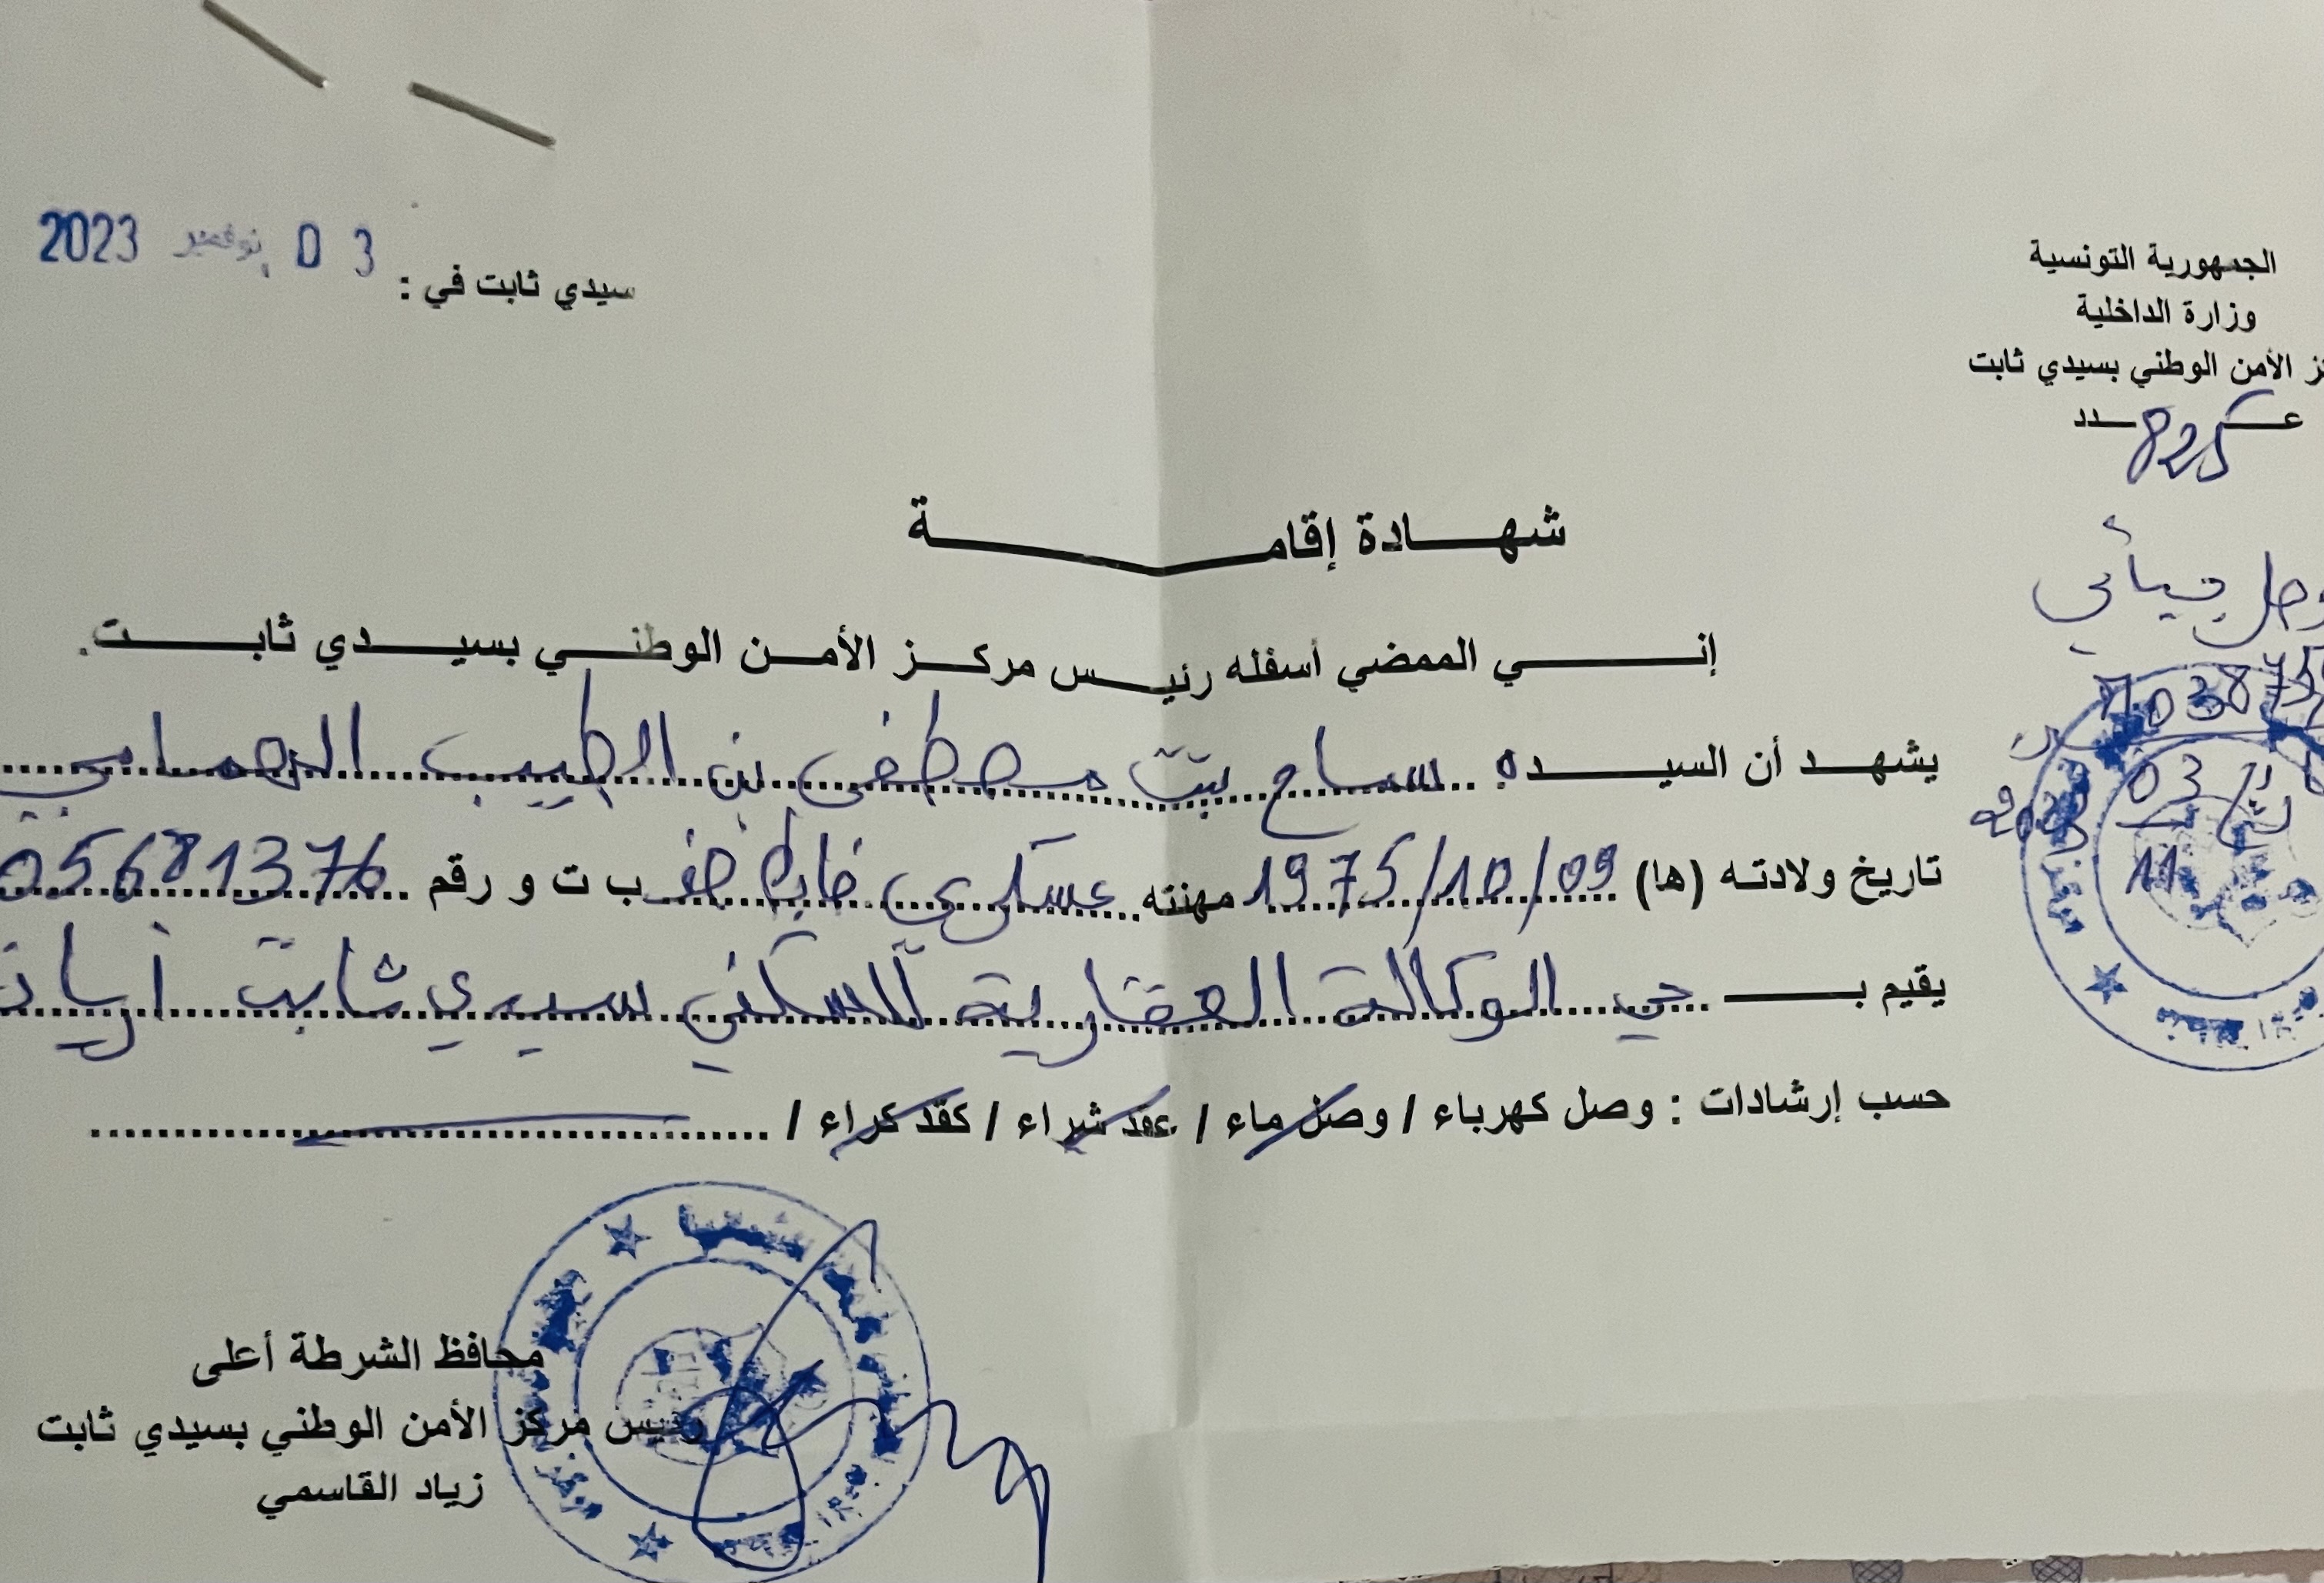 الجمهورية التونسية
وزارة الداخلية
الأمن الوطني بسيدي ثابت
عـــدد 825
سيدي ثابت في : 03 نوفمبر 2023
وصل جبائي
شهـــادة إقامـــة
إنـــي الممضي أسفله رئيـس مركـز الأمـن الوطنـي بسيـدي ثابـت.
يشهـد أن السيـده سماح بنت مصطفى بن الطيب الهمامي
تاريخ ولادته (ها) 1975/10/09 مهنته عسكري ب ت و رقم 05681376
يقيم بـ حي الوكالة العقارية للسكنى سيدي ثابت أريانة
حسب إرشادات : وصل كهرباء / وصل ماء / عقد شراء / كقد كراء /
محافظ الشرطة أعلى
رئيس مركز الأمن الوطني بسيدي ثابت
زياد القاسمي